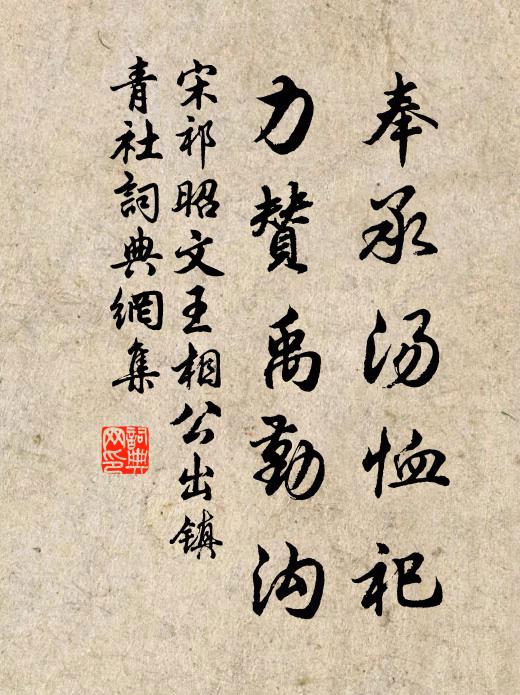 奉承湯恤祀
力贊禹勤沟
宋祁昭文王相公出鎮
青社詞典網集
詞典
网印